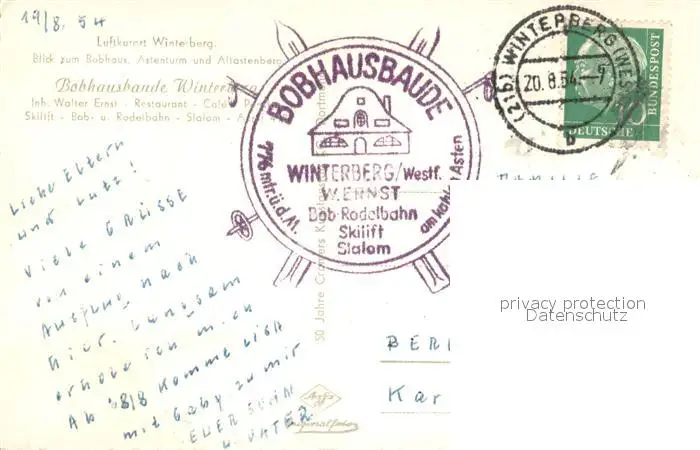 19/8. 54
Luftkurort Winterberg.
Blick zum Bobhaus, Astenturm und Altastenberg
Bobhausbaude Winterberg
Inh. Walter Ernst - Restaurant - Café
Skilift - Bob- u. Rodelbahn - Slalom -
BOBHAUSBAUDE
776 mtr.ü.d.M.
WINTERBERG/Westf.
W. ERNST
Bob-Rodelbahn
Skilift
Slalom
am kahlen Asten
WINTERBERG (WESTF
20.8.54.-9
(21b)
b
DEUTSCHE
BUNDESPOST
Liebe Eltern
und Lutz!
Viele GRÜSSE
von einem
Ausflug nach
hier. Langsam
erhole ich mich
Ab 28/8 komme LISA
mit Gaby zu mir
EUER SOHN
u. VATER
50 Jahre Cramers
BERL
Kar
Agfa
Originalfoto
privacy protection
Datenschutz